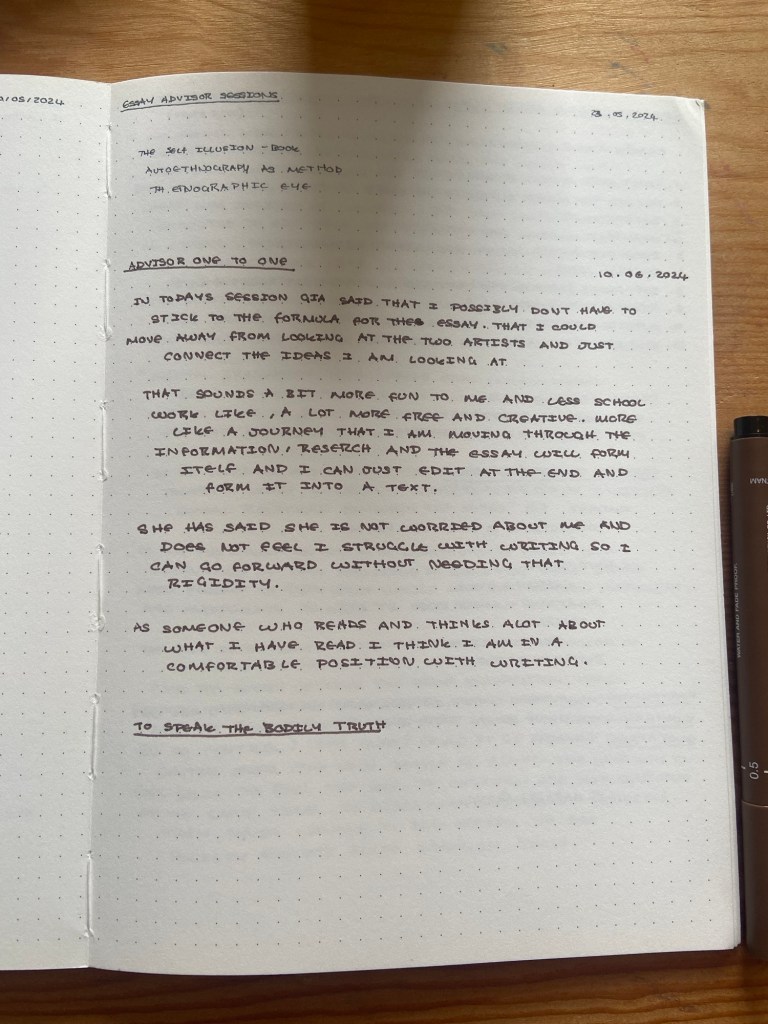 0/05/2024
ESSAY ADVISOR SESSIONS
.05.2024
THE SELF ILLUSION - BOOK
AUTOETHNOGRAPHY AS METHOD
TH. ETNOGRAPHIC EYE
ADVISOR ONE TO ONE
10.06.2024
IN TODAYS SESSION GIA SAID THAT I POSSIBLY DONT HAVE TO
STICK TO THE FORMULA FOR THE ESSAY. THAT I COULD
MOVE AWAY FROM LOOKING AT THE TWO ARTISTS AND JUST
CONNECT THE IDEAS I AM LOOKING AT
THAT SOUNDS A BIT MORE FUN TO ME AND LESS SCHOOL
WORK LIKE, A LOT MORE FREE AND CREATIVE. MORE
LIKE A JOURNEY THAT I AM MOVING THROUGH THE
INFORMATION, RESERCH AND THE ESSAY WILL FORM
ITELF AND I CAN JUST EDIT AT THE END AND
FORM IT INTO A TEXT.
SHE HAS SAID SHE IS NOT WORRIED ABOUT ME AND
DOES NOT FEEL I STRUGGLE WITH WRITING SO I
CAN GO FORWARD WITHOUT NEEDING THAT
RIGIDITY.
AS SOMEONE WHO READS AND THINKS ALOT ABOUT
WHAT I HAVE READ I THINK I AM IN A
COMFORTABLE POSITION WITH WRITING.
TO SPEAK THE BODILY TRUTH
WATER AND FADE PROOF
0.5